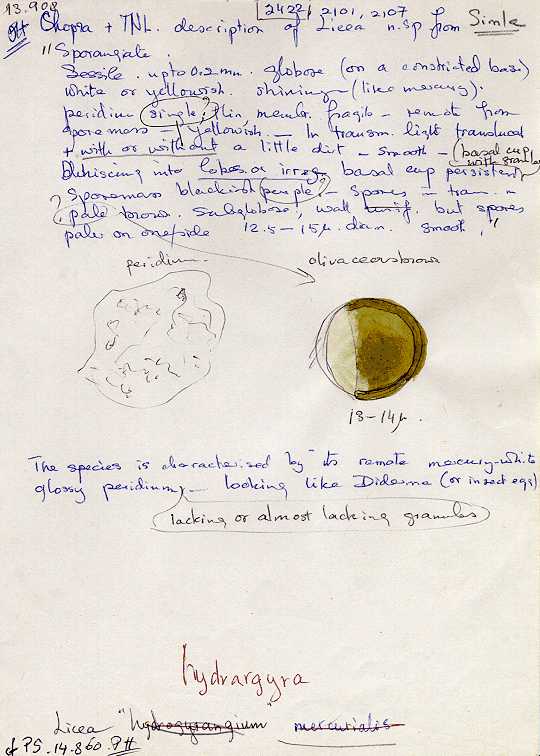 13.908
2422, 2101, 2107
Chopra + TNL. description of Licea n.sp from Simla
"Sporangiate.
Sessile. upto 0.2 mm. globose (on a constricted base)
white or yellowish. shining (like mercury).
peridium single? thin, membr. fragile - remote from
sporemass - yellowish. - In transm. light translucent
+ with or without a little dirt - smooth - (basal cup
with granules
Dehiscing into lobes or irreg basal cup persistent
Sporemass blackish purple? - Spores - tran. "
? pale brown. Subglobose, wall unif. but spores
paler on one side 12.5-15µ. diam. smooth."
peridium.
olivaceous brown
13-14µ.
The species is characterised by its remote mercury-white
glossy peridium, - looking like Diderma (or insect eggs)
lacking or almost lacking granules
hydrargyra
Licea "hydrogyrangium" mercurialis
cf PS. 14.860.